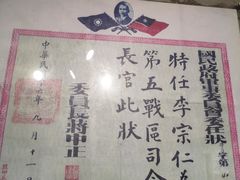 國民政府軍事委員會委任狀
字第
特任李宗仁為
第五戰區司令
長官此狀
委員長蔣中正
中華民 六年九月十一